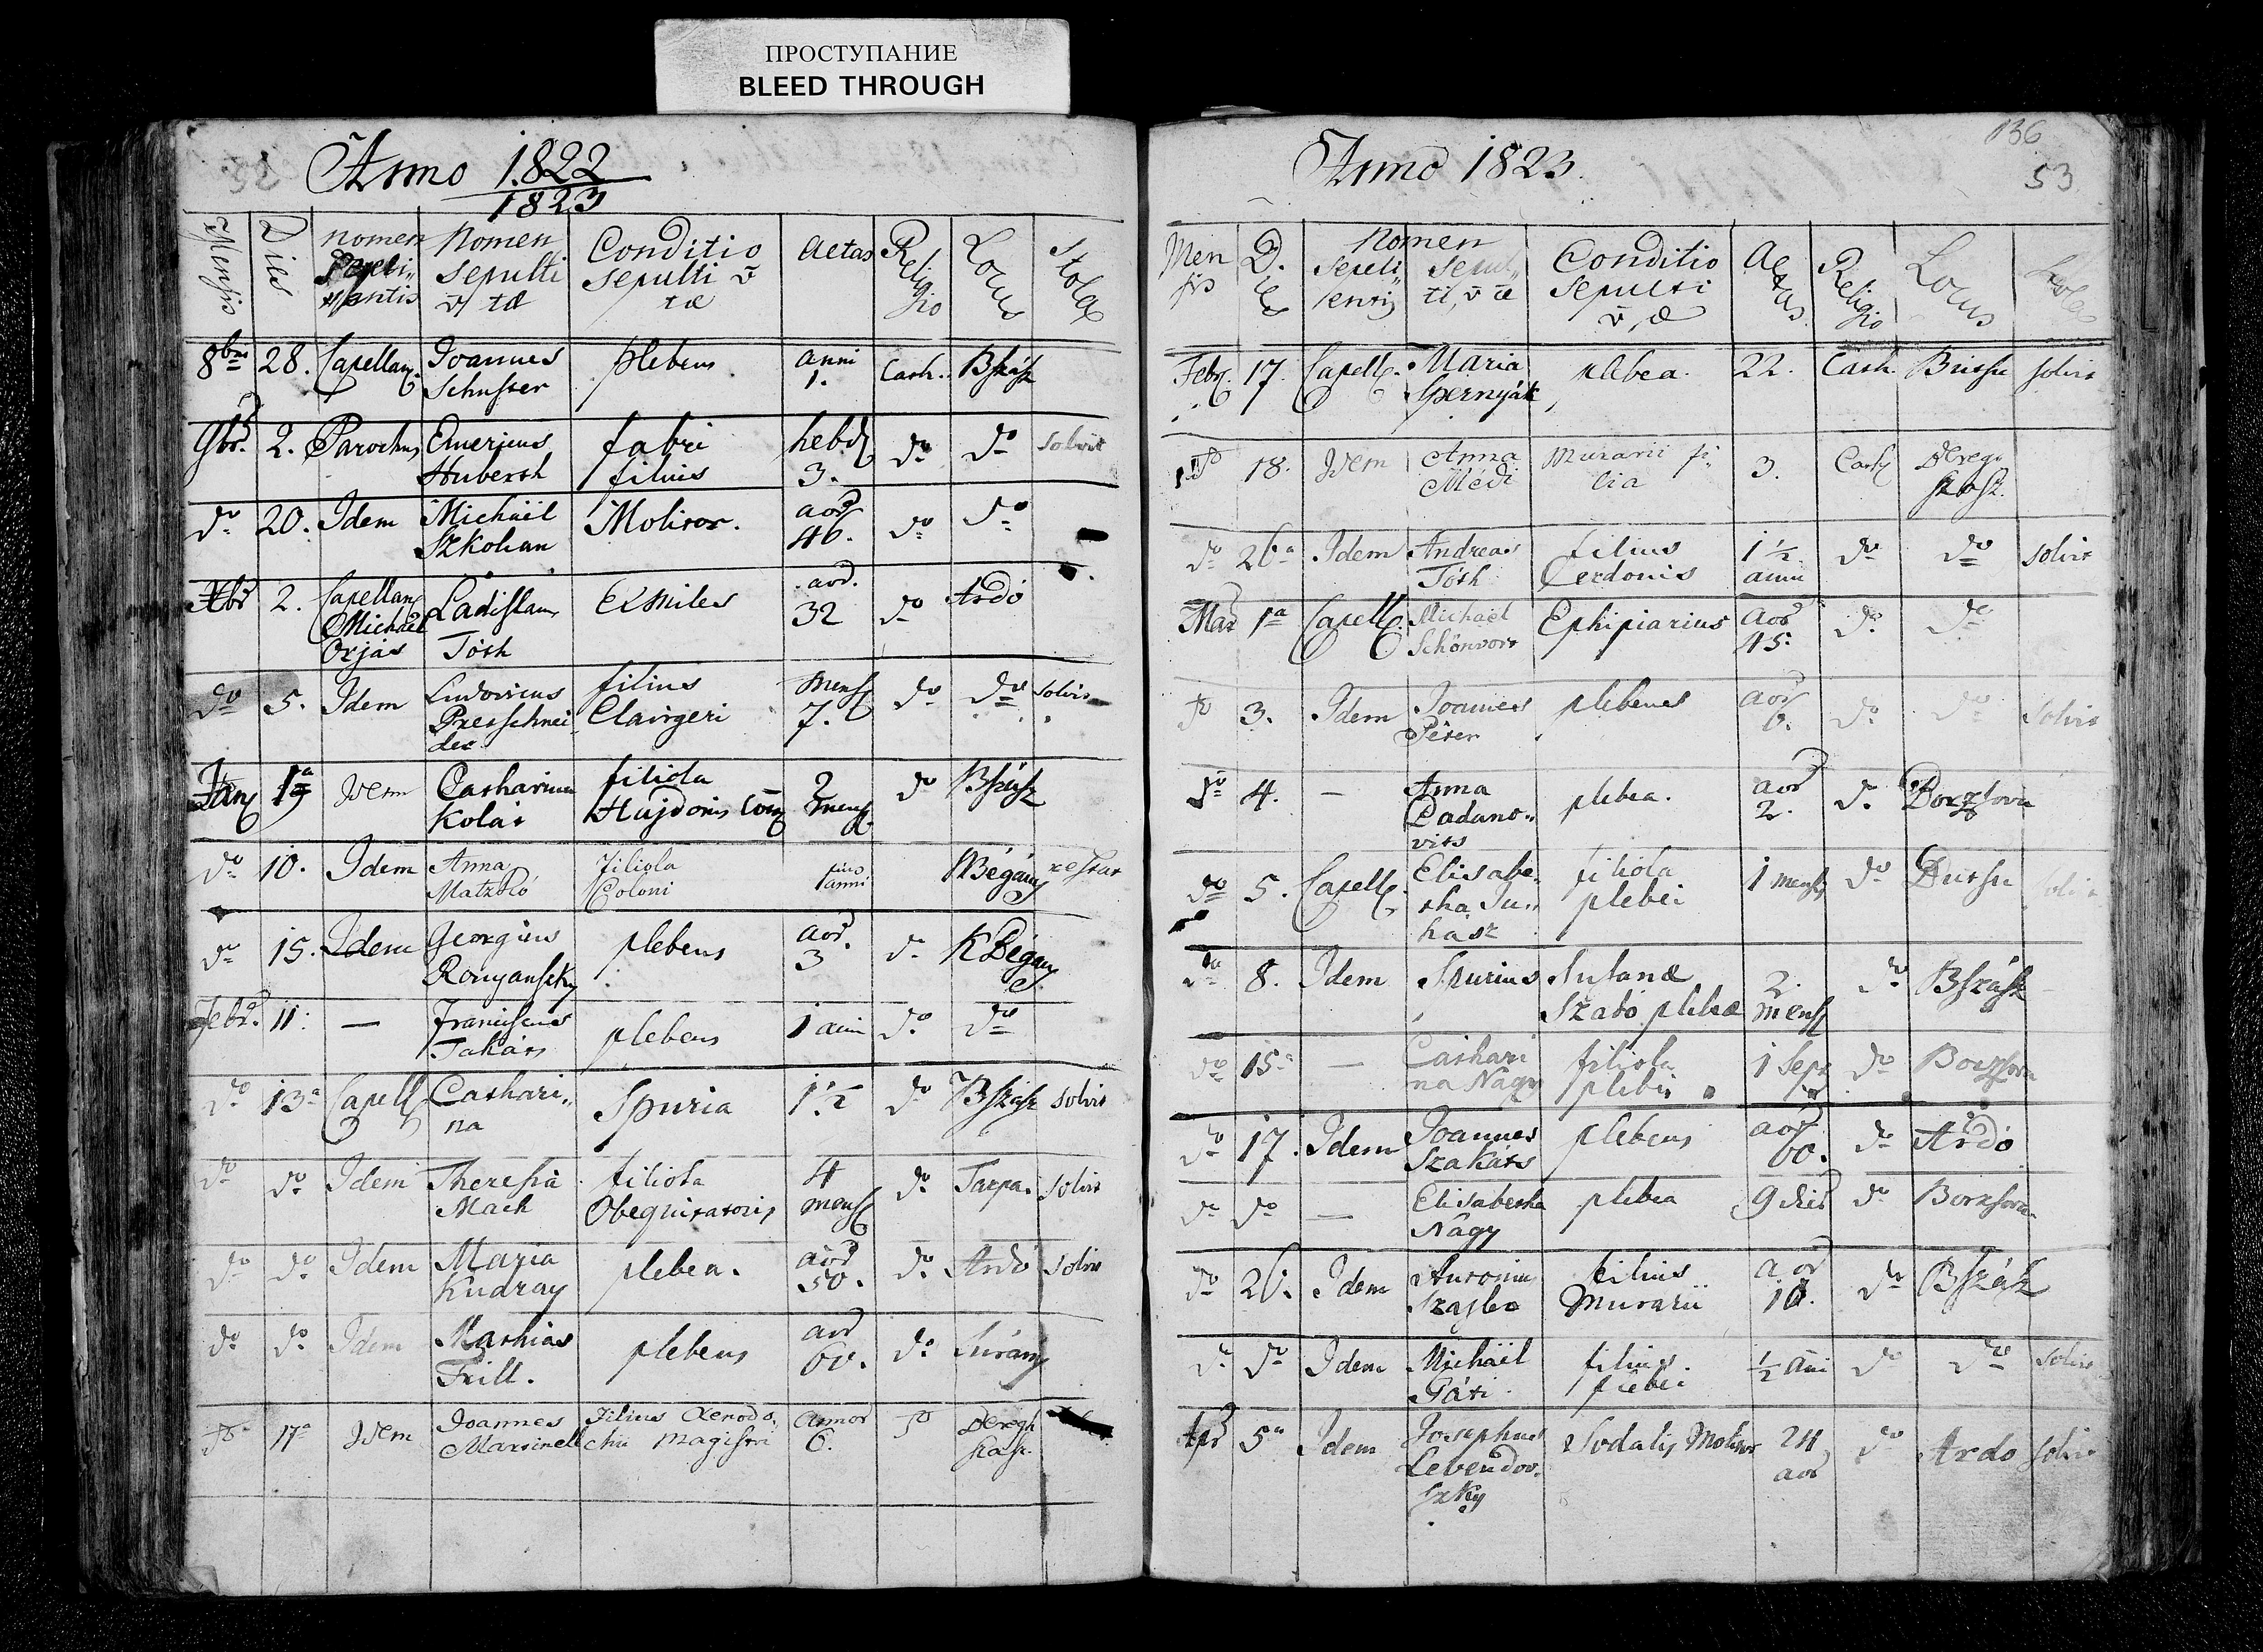 ПРОСТУПАНИЕ
BLEED THROUGH
Anno 1822
1823
Mensis Dies Nomen Sepeli- entis Nomen Sepulti v tæ Conditio Sepulti v tæ Aetas Religio Locus Stola
8bris 28. Capellanus Joannes Schuster plebeus anni 1. Cath. BSzász
9br. 2. Parochus Emericus Huberth fabri filius hebd 3. do do solvit
do 20. Idem Michäel Szkohan Molitor. aor 46. do do
Xbr 2. Capellan Michael Orjas Ladislaus Tóth Exmiles aor. 32 do Ardó
do 5. Idem Ludovicus Presschnei- der filius mens 7. do do solvit
Jan 1a Idem Catharina Kolar filiola Hajdonis Com 2 mens do BSzász
do 10. Idem Anna Matzkó filiola Coloni anni Bégány restat
do 15. Idem Georgius Ronyanszky plebeus aor. 3 do KBégány
Febr. 11. — Franciscus Takáts plebeus 1 ani do do
do 13a Capell Cathari- na Spuria 1 1/2 do BSzász solvit
do do Idem Theresia Mach filiola Obequitatoris 4 mens do Tarpa. solvit
do do Idem Maria Kudray plebea. aor 50. do Ardó solvit
do do Idem Mathias Frill. plebeus aor 60. do Surány
do 17a Idem Joannes Martinell filius Xenodo- chii Magistri annor 6. do Beregh szász
136
53
Anno 1823.
Men sis Dies Nomen Sepeli- entis Sepul- ti, v æ Conditio Sepulti v, æ Aetas Religio Locus Stola
Febr 17. Capell. Maria Spernyák plebea. 22. Cath Butsu solvit
do 18. Idem Anna Médi Murarii fi- lia 3. Cath Bereg szász.
do 26a Idem Andreas Tóth filius Cerdonis 1 1/2 anni do do solvit
Mar 1a Capell. Michael Schönvort Ephipiarius Aor 45. do do
do 3. Idem Joannes Péter plebeus aor 6. do do solvit
do 4. — Anna Badano- vits plebea. aor 2. do Borzsova
do 5. Capell. Elisabe- tha Ju- hász filiola plebei 1 mens do Butsu solvit
do 8. Idem Spurius Susanæ Szabó plebeæ 2. mens do BSzász
do 15a — Cathari na Nagy filiola plebei 1 Sept do Borzsova
do 17. Idem Joannes Szakáts plebeus aor 60. do Ardó
do do — Elisabetha Nagy plebea 9 dier do Borzsova
do 26. Idem Antonius filius Murarii aor 10. do BSzász
do do Idem Michäel Gáti filius plebei 1/2 ani do do solvit
Apr 5a Idem Josephus Levendov- szky Sodalis Molitor 24 aor do Ardo solvit